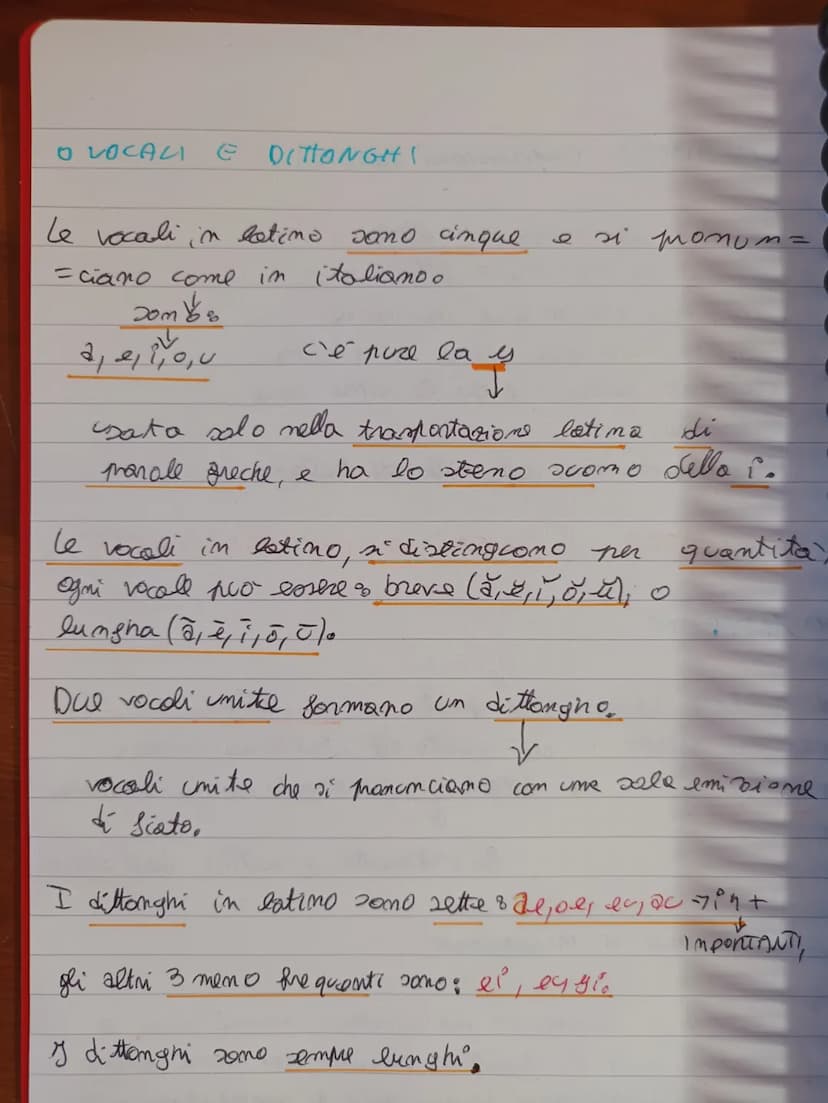 O VOCALI E DITTONGHI
Le vocali in latino sono cinque e si pronun=
=ciano come in italiano.
sono:
a, e, i, o, u c'è pure la y
usata solo nella trasportazione latina di
parole greche, e ha lo stesso suono della i.
Le vocali in latino, si distinguono per quantità,
ogni vocale può essere: breve (ă, ĕ, ĭ, ŏ, ŭ), o
lungha (ā, ē, ī, ō, ū).
Due vocali unite formano un dittongho.
vocali unite che si pronunciano con una sola emissione
di fiato.
I dittonghi in latino sono sette: ae, oe, eu, au → i 4 +
IMPORTANTI,
gli altri 3 meno frequenti sono: ei, eu, yi.
I dittonghi sono sempre lunghi.